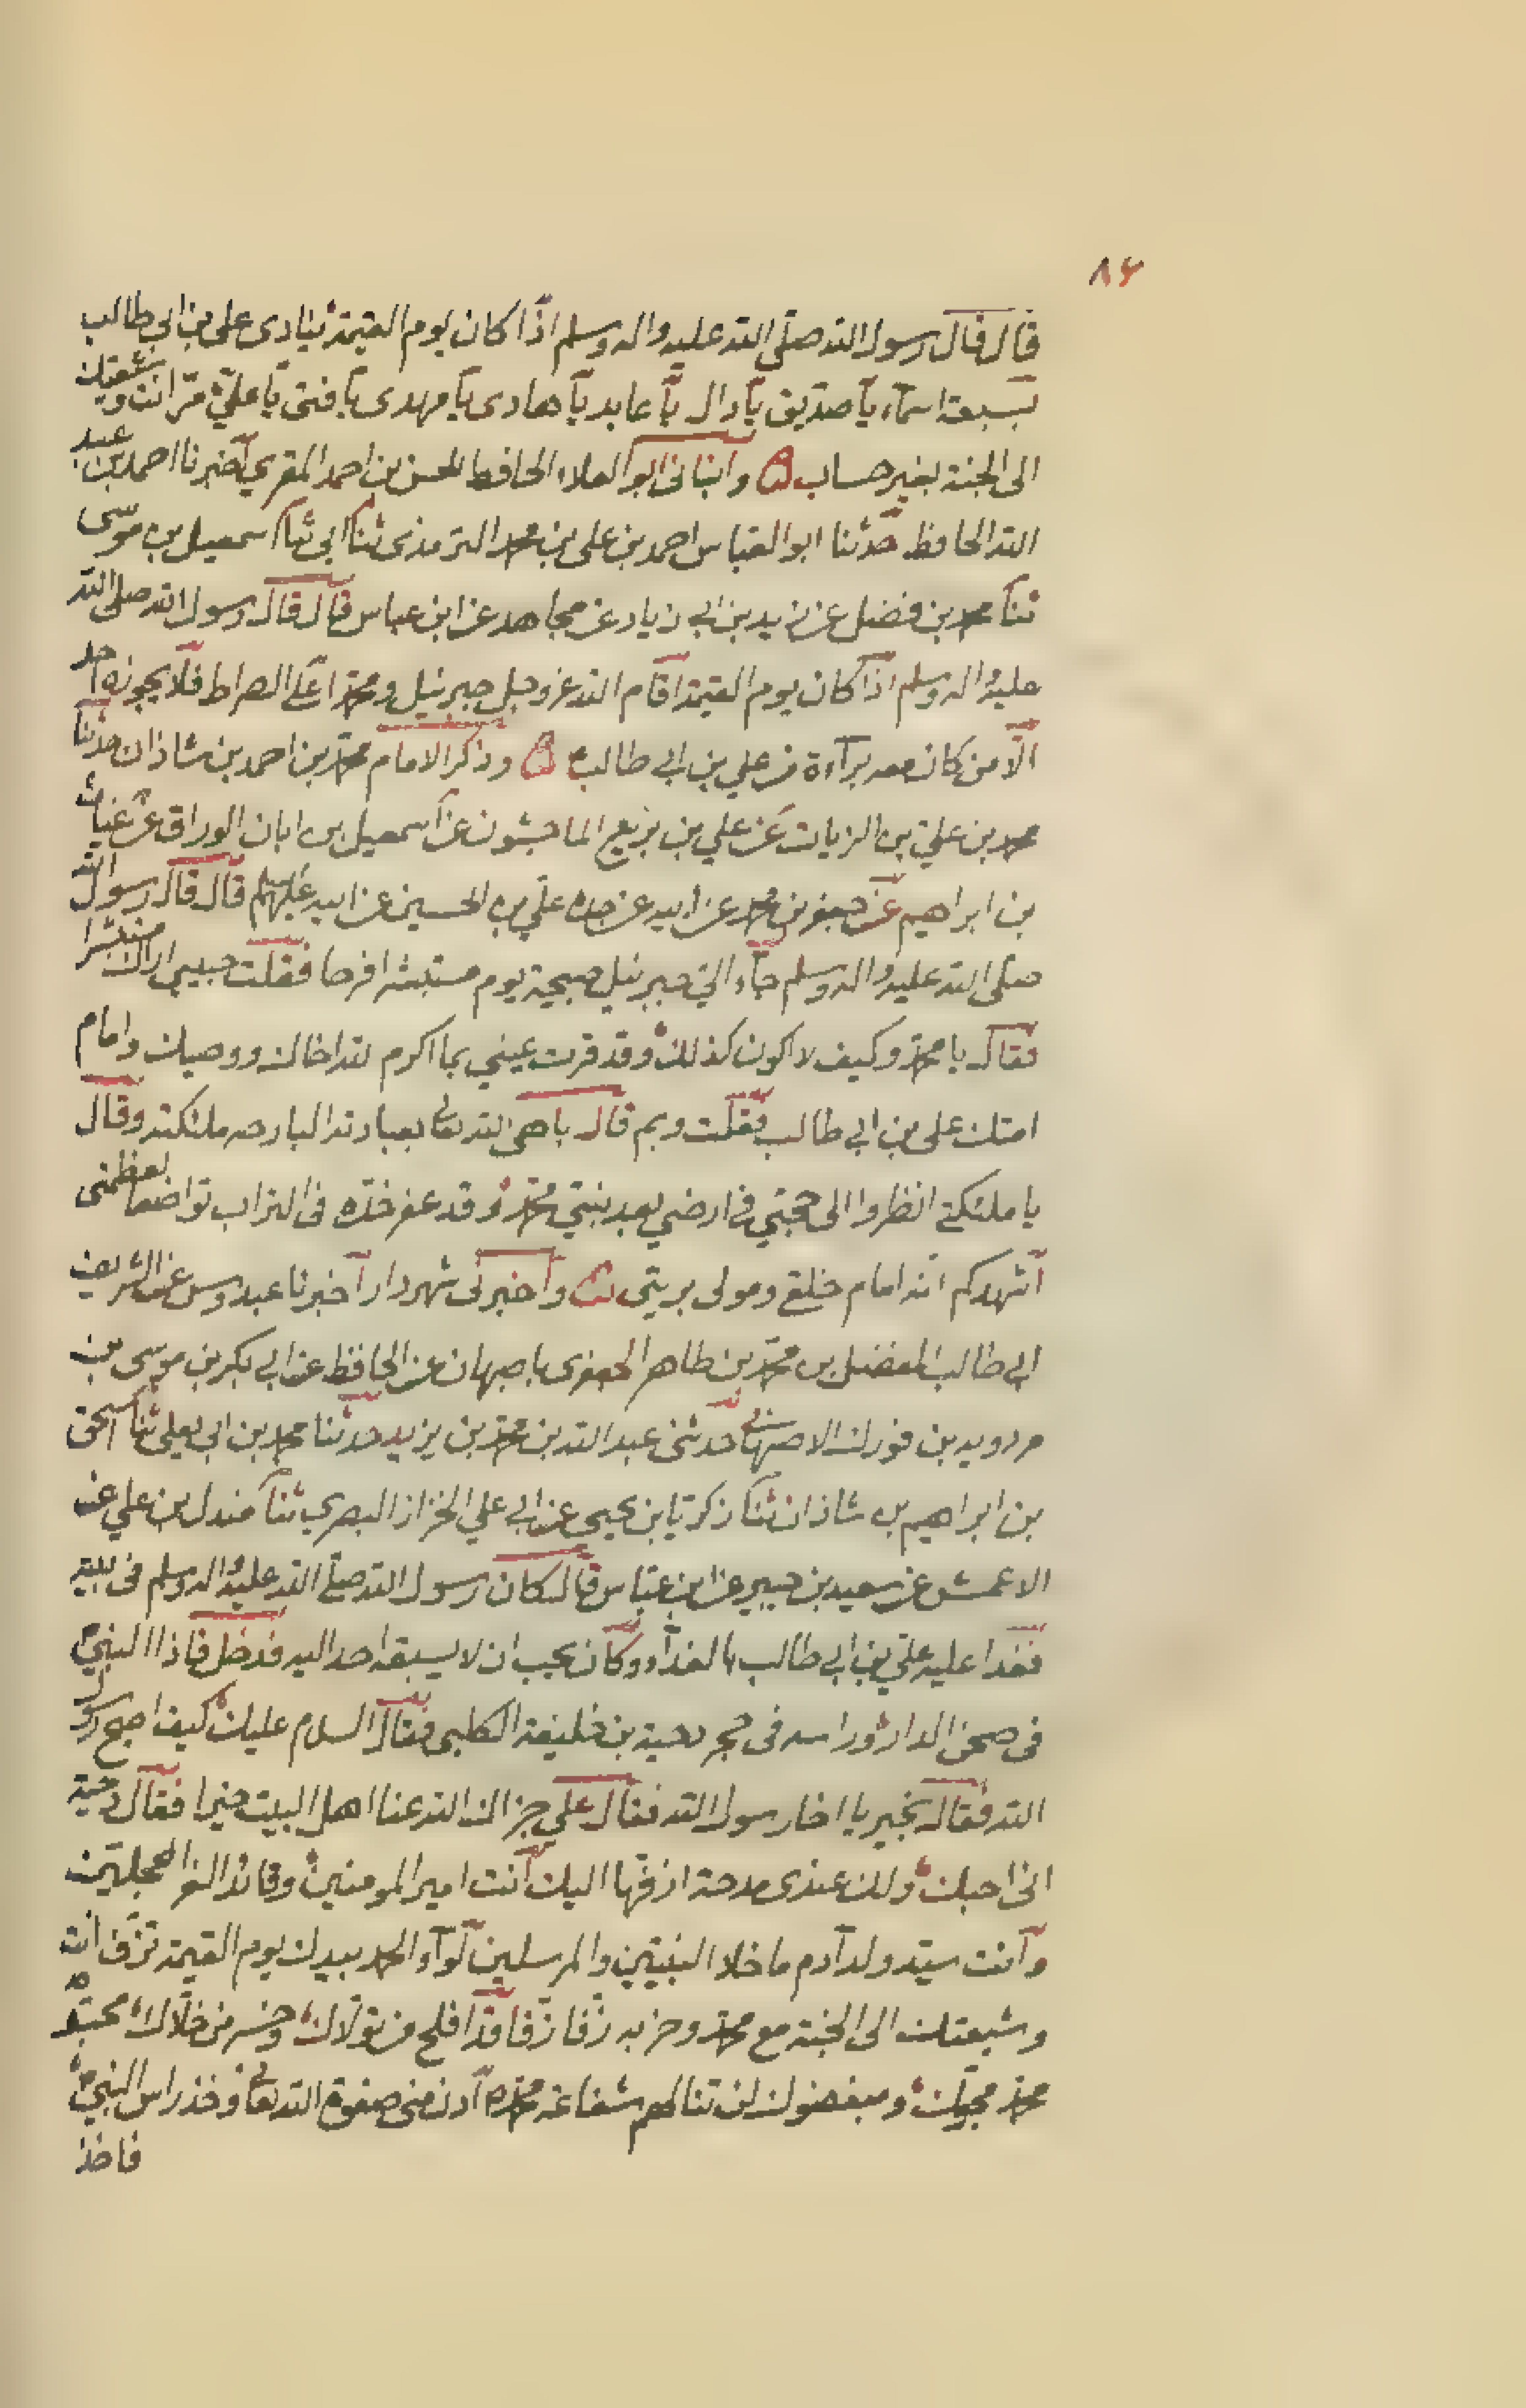 ٨٤
قال قال رسول الله صلّى الله عليه واله وسلم اذا كان يوم القيمة ينادى على بن ابى طالب
بسبعة اسماء يا صدّيق يا دال يا عابد يا هادى يا مهدى يا فتى يا علىّ مرّ انت وشيعتك
الى الجنة بغير حساب وانبانى ابو العلاء الحافظ الحسن بن احمد المقرى اخبرنا احمد بن عبد
الله الحافظ حدّثنا ابو العباس احمد بن على بن محمد الترمذى ثنا ابى ثنا اسمعيل بن موسى
ثنا محمد بن فضيل عن يزيد بن ابى زياد عن مجاهد عن ابن عباس قال قال رسول الله صلى الله
عليه واله وسلم اذا كان يوم القيمة اقام الله عز وجل جبرئيل ومحمدا على الصراط فلا يجوزه احد
الّا من كان معه براءة من علي بن ابى طالب وذكر الامام محمد بن احمد بن شاذان حدثنا
محمد بن علي بن الزيات عن علي بن بزيع الماجشون عن اسمعيل بن ابان الوراق عن غياث
بن ابراهيم عن جعفر بن محمد عن ابيه عن جده علي بن الحسين عن ابيه عليهم قال قال رسول الله
صلى الله عليه واله وسلم جاء الي جبرئيل صبيحة يوم مستبشرا فرحا فقلت حبيبى اراك مستبشرا
فقال يا محمد وكيف لا اكون كذلك وقد قرت عيني بما اكرم الله اخاك ووصيك وامام
امتك على بن ابى طالب فقلت وبم قال باهى الله تعالى بعبادته البارحه ملئكته وقال
يا ملئكتى انظروا الى حجتي فى ارضي بعد نبيّي محمد وقد عفر خدّه فى التراب تواضعا لعظمتى
اشهدكم انّه امام خلقى ومولى بريتى واخبرنى شهردار اخبرنا عبدوس عن الشريف
ابى طالب المفضل بن محمد بن طاهر الجعفرى باصبهان عن الحافظ عن ابى بكر بن موسى بن
مردويه بن فورك الاصبهانى حدثنى عبد الله بن محمد بن يزيد حدثنا محمد بن ابى يعلى ثنا اسحق
بن ابراهيم بن شاذان ثنا زكريا بن يحيى عن ابى علي الخزاز البصرى ثنا مندل بن علي عن
الاعمش عن سعيد بن جبير عن ابن عبّاس قال كان رسول الله صلى الله عليه واله وسلم فى بيته
فغدا عليه علي بن ابى طالب بالغداة وكان يحب ان لا يسبقه احد اليه فدخل فاذا النبي
فى صحن الدار وراسه فى حجر دحية بن خليفة الكلبى فقال السلام عليك كيف اصبح رسول
الله فقال بخير يا اخا رسول الله فقال علي جزاك الله عنا اهل البيت خيرا فقال دحية
انى احبك ولك عندى مدحة ازفّها اليك انت امير المومنين وقائد الغر المحجلين
وانت سيّد ولد آدم ما خلا النبيين والمرسلين لواء الحمد بيدك يوم القيمة تزف انت
وشيعتك الى الجنة مع محمد وحزبه زفا زفا قد افلح من تولّاك وخسر من خلّاك محبّو
محمد محبّوك ومبغضوك لن تنالهم شفاعة محمد ادن منى صفوة الله تعالى وخذ راس النبي
فاخذ